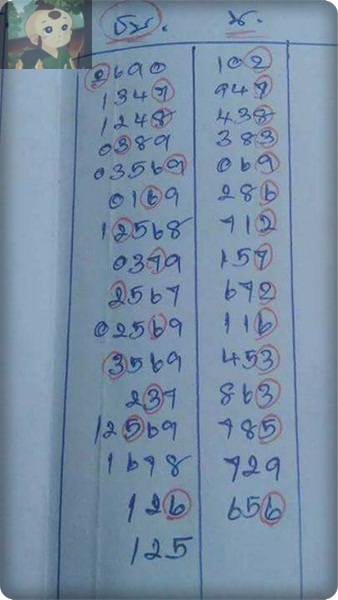 ธน. น.
2690 102
1347 947
1248 438
0389 383
03569 069
0169 286
12568 712
0379 157
2567 672
02569 116
3569 453
237 863
12569 785
1678 729
126 656
125